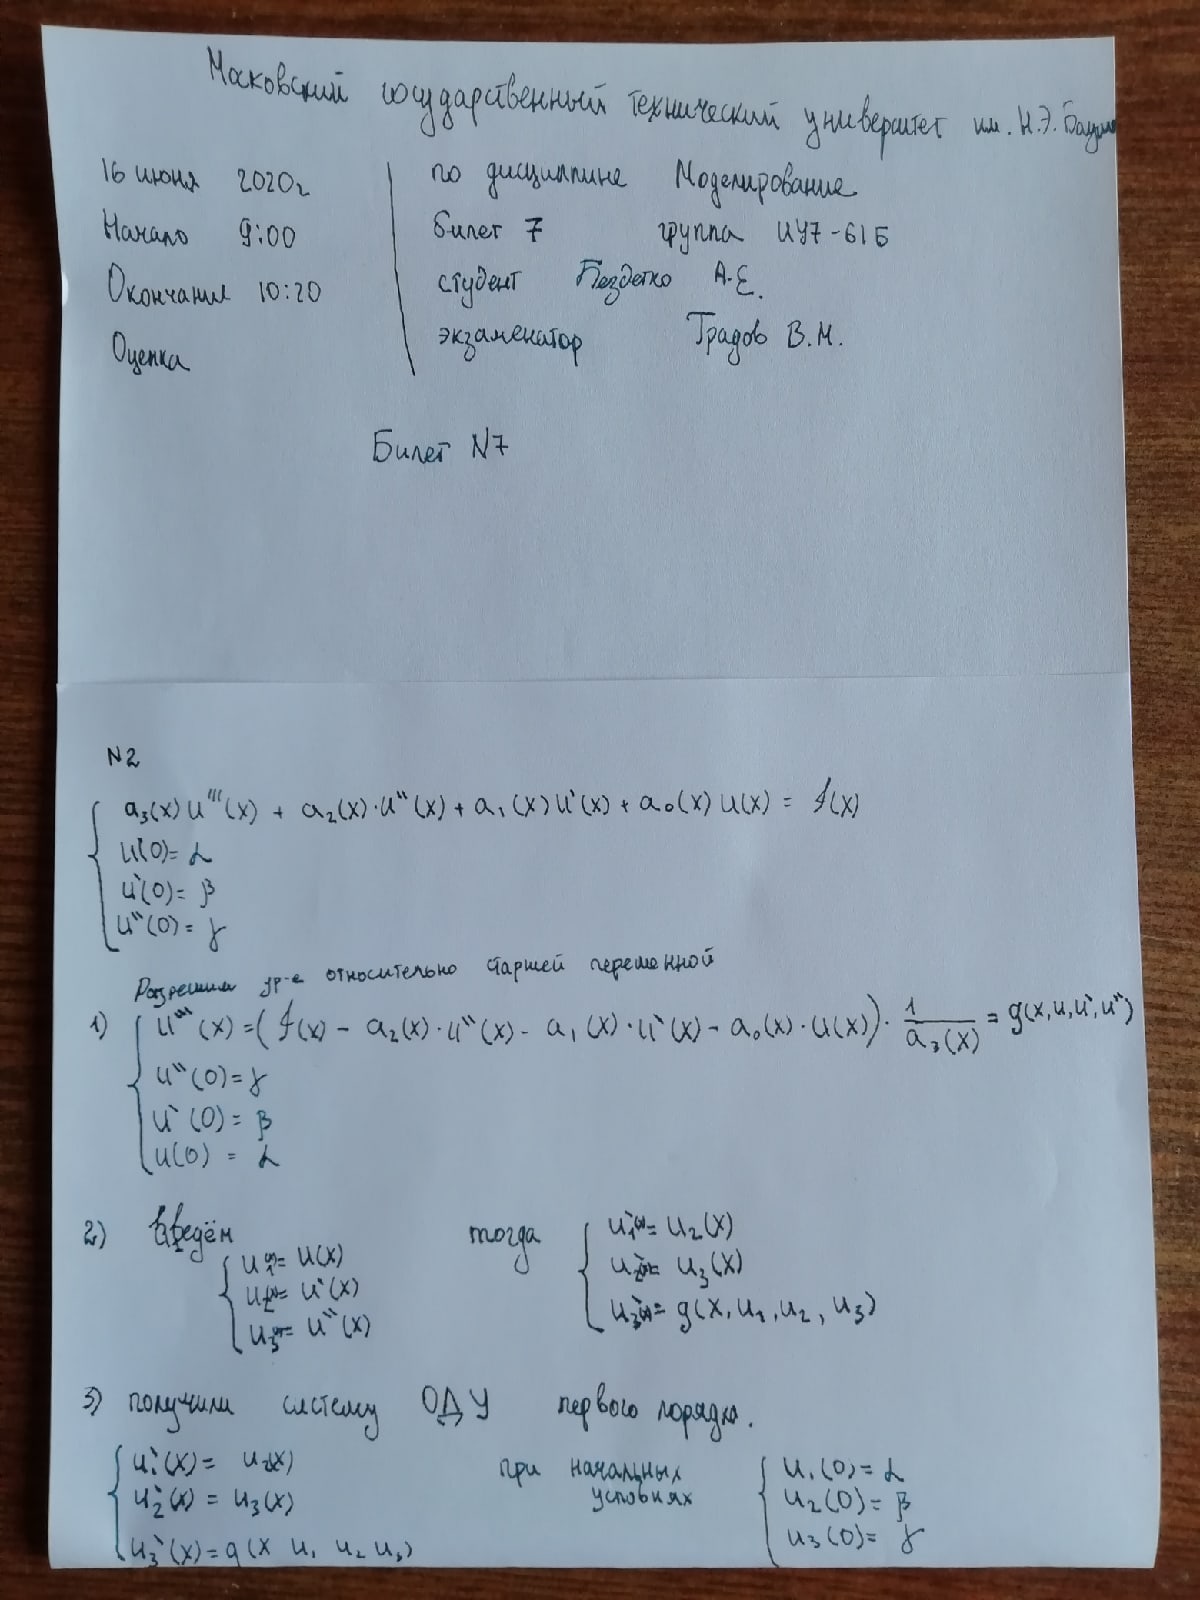 Московский государственный технический университет им. Н.Э. Баума
16 июня 2020г
Начало 9:00
Окончание 10:20
Оценка
по дисциплине Моделирование
билет 7 группа ИУ7-61Б
студент Бездетко А.Е.
экзаменатор Градов В.М.
Билет N7
N2
a₃(x)u'''(x) + a₂(x)·u''(x) + a₁(x)u'(x) + a₀(x)u(x) = f(x)
u(0)= α
u'(0)= β
u''(0)= γ
Разрешим ур-е относительно старшей переменной
1) u'''(x) = (f(x) - a₂(x)·u''(x) - a₁(x)·u'(x) - a₀(x)·u(x))· 1/a₃(x) = g(x,u,u',u'')
u''(0)=γ
u'(0)= β
u(0) = α
2) Введём
u₁(x)= u(x)
u₂(x)= u'(x)
u₃(x)= u''(x)
тогда
u₁'(x)= u₂(x)
u₂'(x)= u₃(x)
u₃'(x)= g(x,u₁,u₂,u₃)
3) получили систему ОДУ первого порядка.
u₁'(x)= u₂(x)
u₂'(x) = u₃(x)
u₃'(x)=g(x u₁ u₂ u₃)
при начальных
условиях
u₁(0)= α
u₂(0)= β
u₃(0)= γ